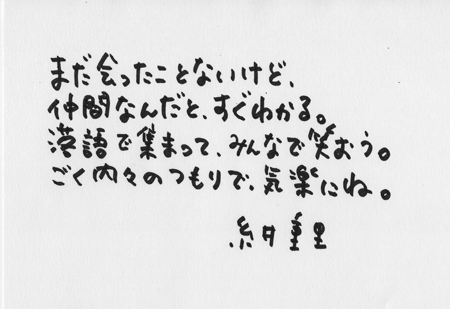 まだ会ったことないけど、
仲間なんだと、すぐわかる。
落語で集まって、みんなで笑おう。
ごく内々のつもりで、気楽にね。
糸井重里